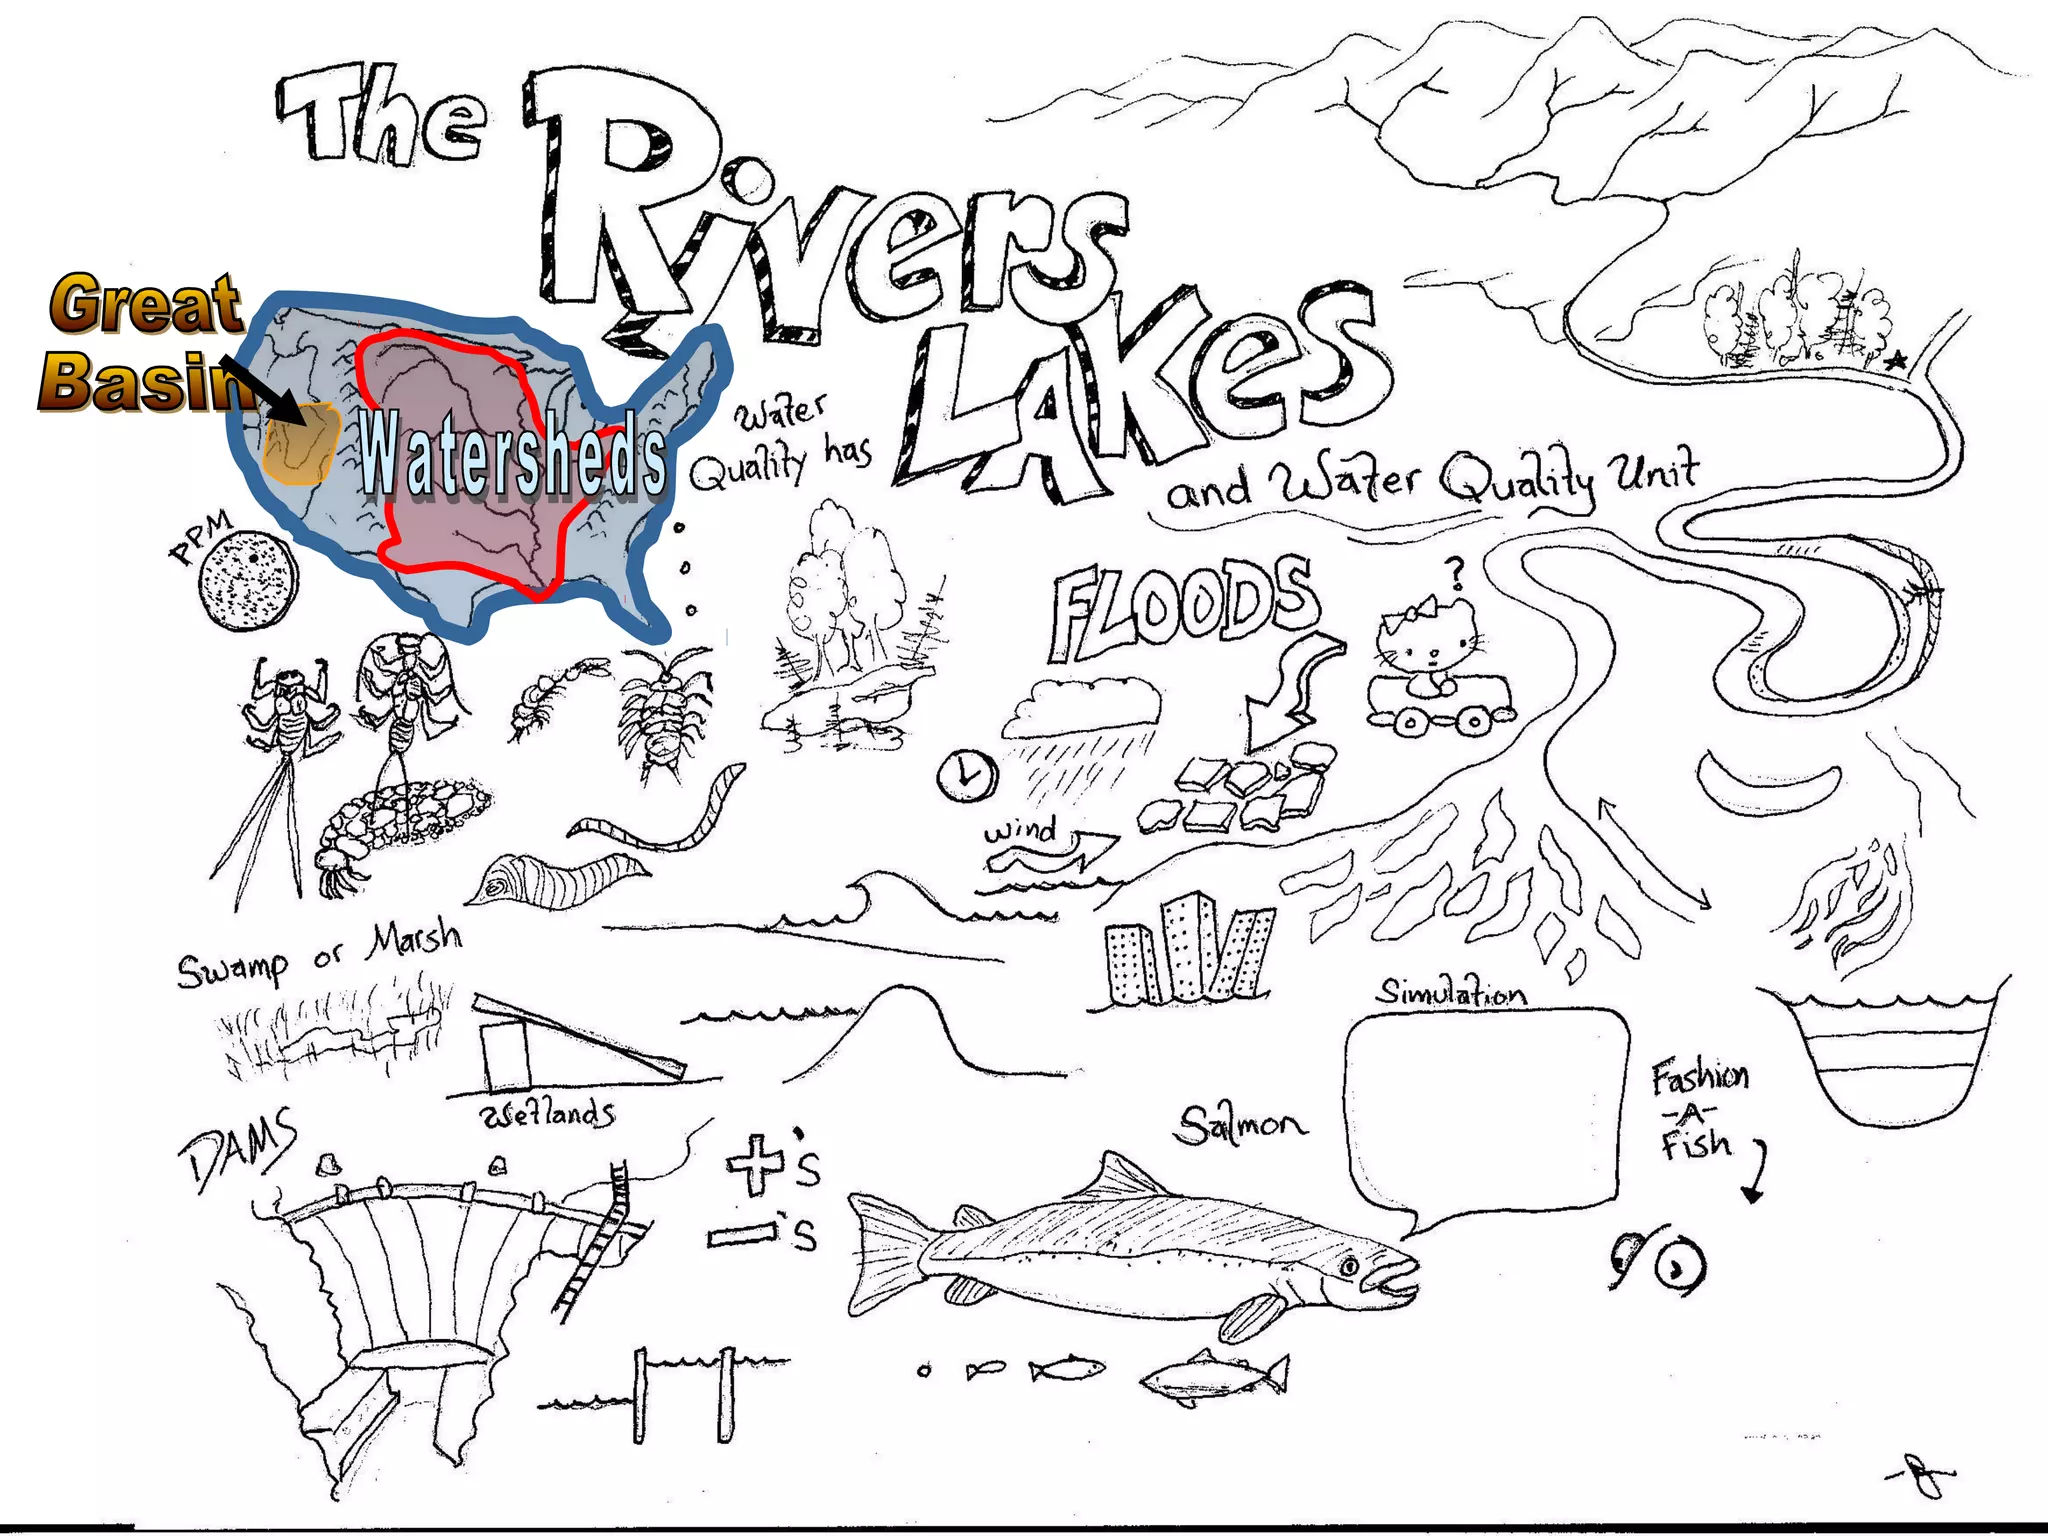 The
Rivers
Lakes
and Water Quality Unit
Great
Basin
Watersheds
Water
Quality has
PPM
FLOODS
?
wind
Swamp or Marsh
Wetlands
Simulation
Fashion
-A-
Fish
Salmon
DAMS
+'s
-'s